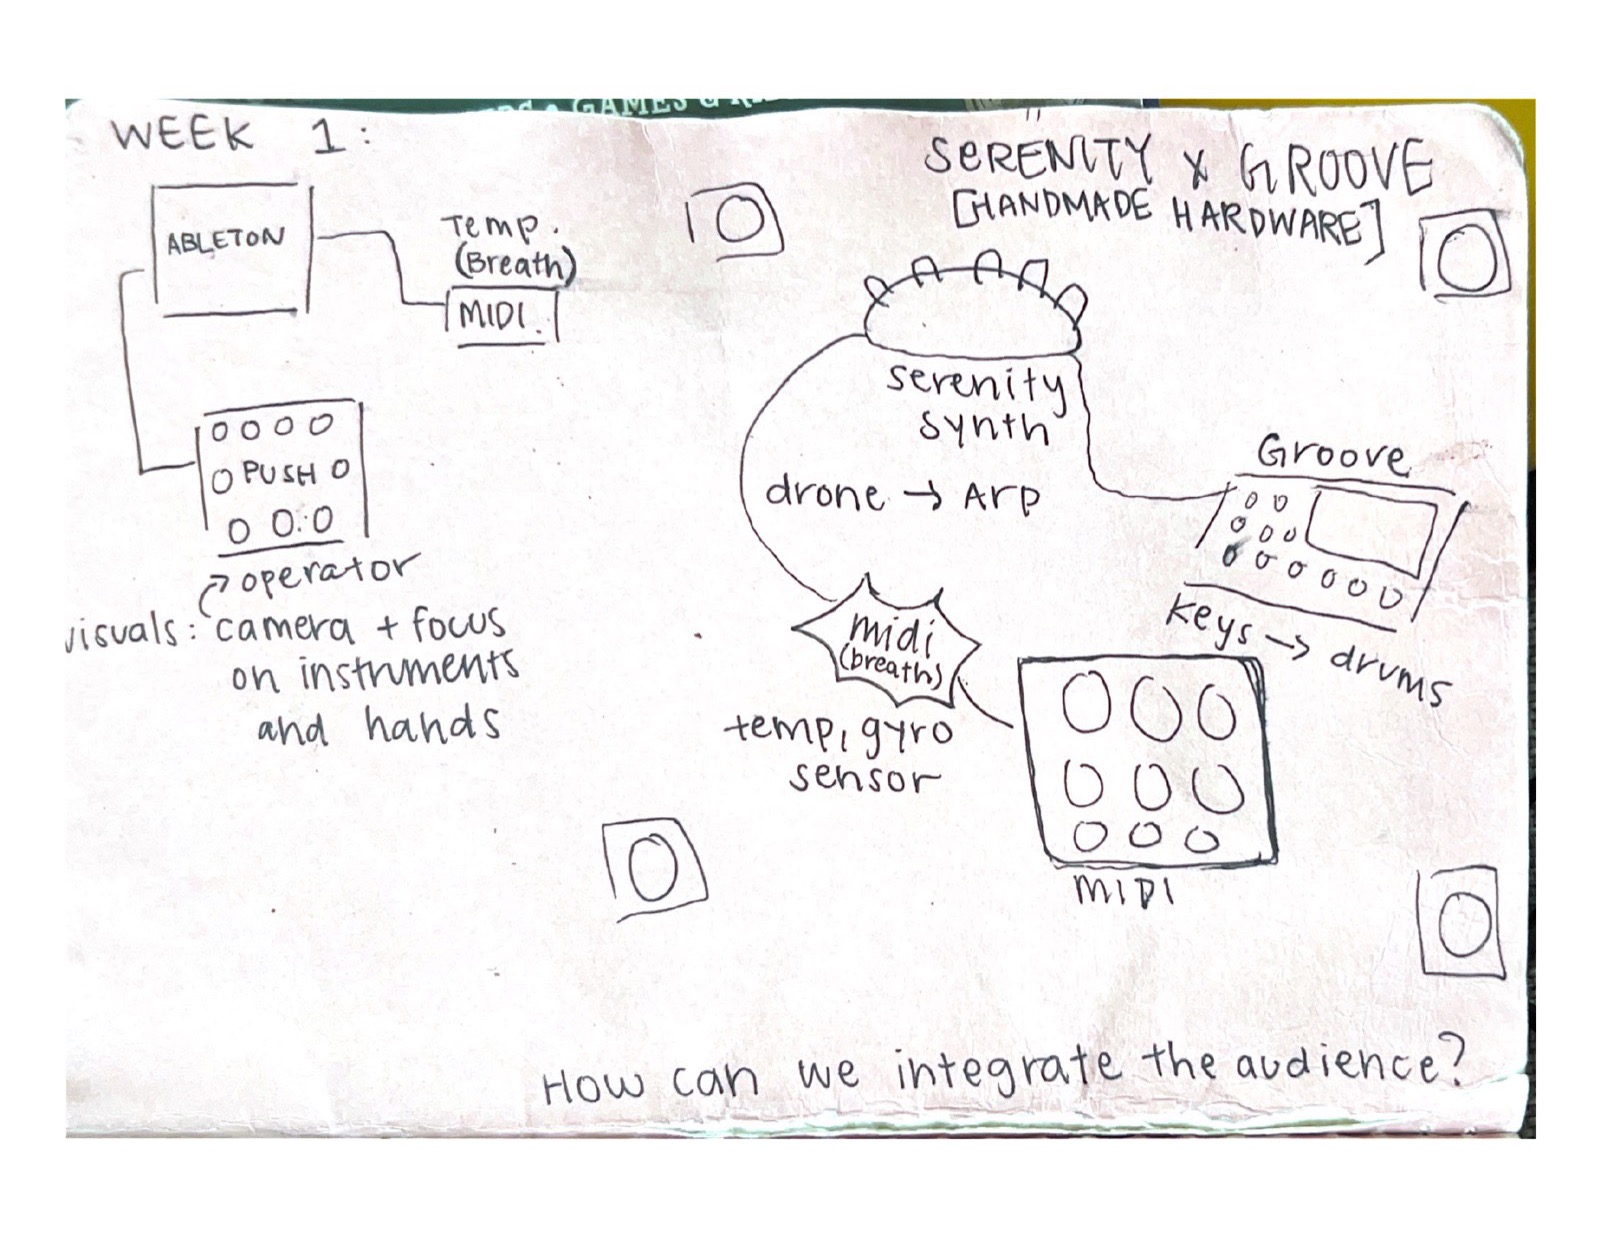 GAMES
WEEK 1:
ABLETON
Temp.
(Breath)
MIDI.
PUSH
operator
visuals: camera + focus
on instruments
and hands
SERENITY X GROOVE
[HANDMADE HARDWARE]
serenity
synth
drone → Arp
Groove
keys → drums
midi
(breath)
temp, gyro
sensor
MIDI
How can we integrate the audience?